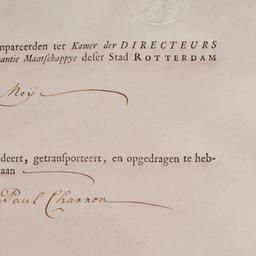 mpareerden ter Kamer der DIRECTEURS
rantie Maatschappye deser Stad ROTTERDAM
Meij
edeert, getransporteert, en opgedragen te heb-
aan
Paul Charron